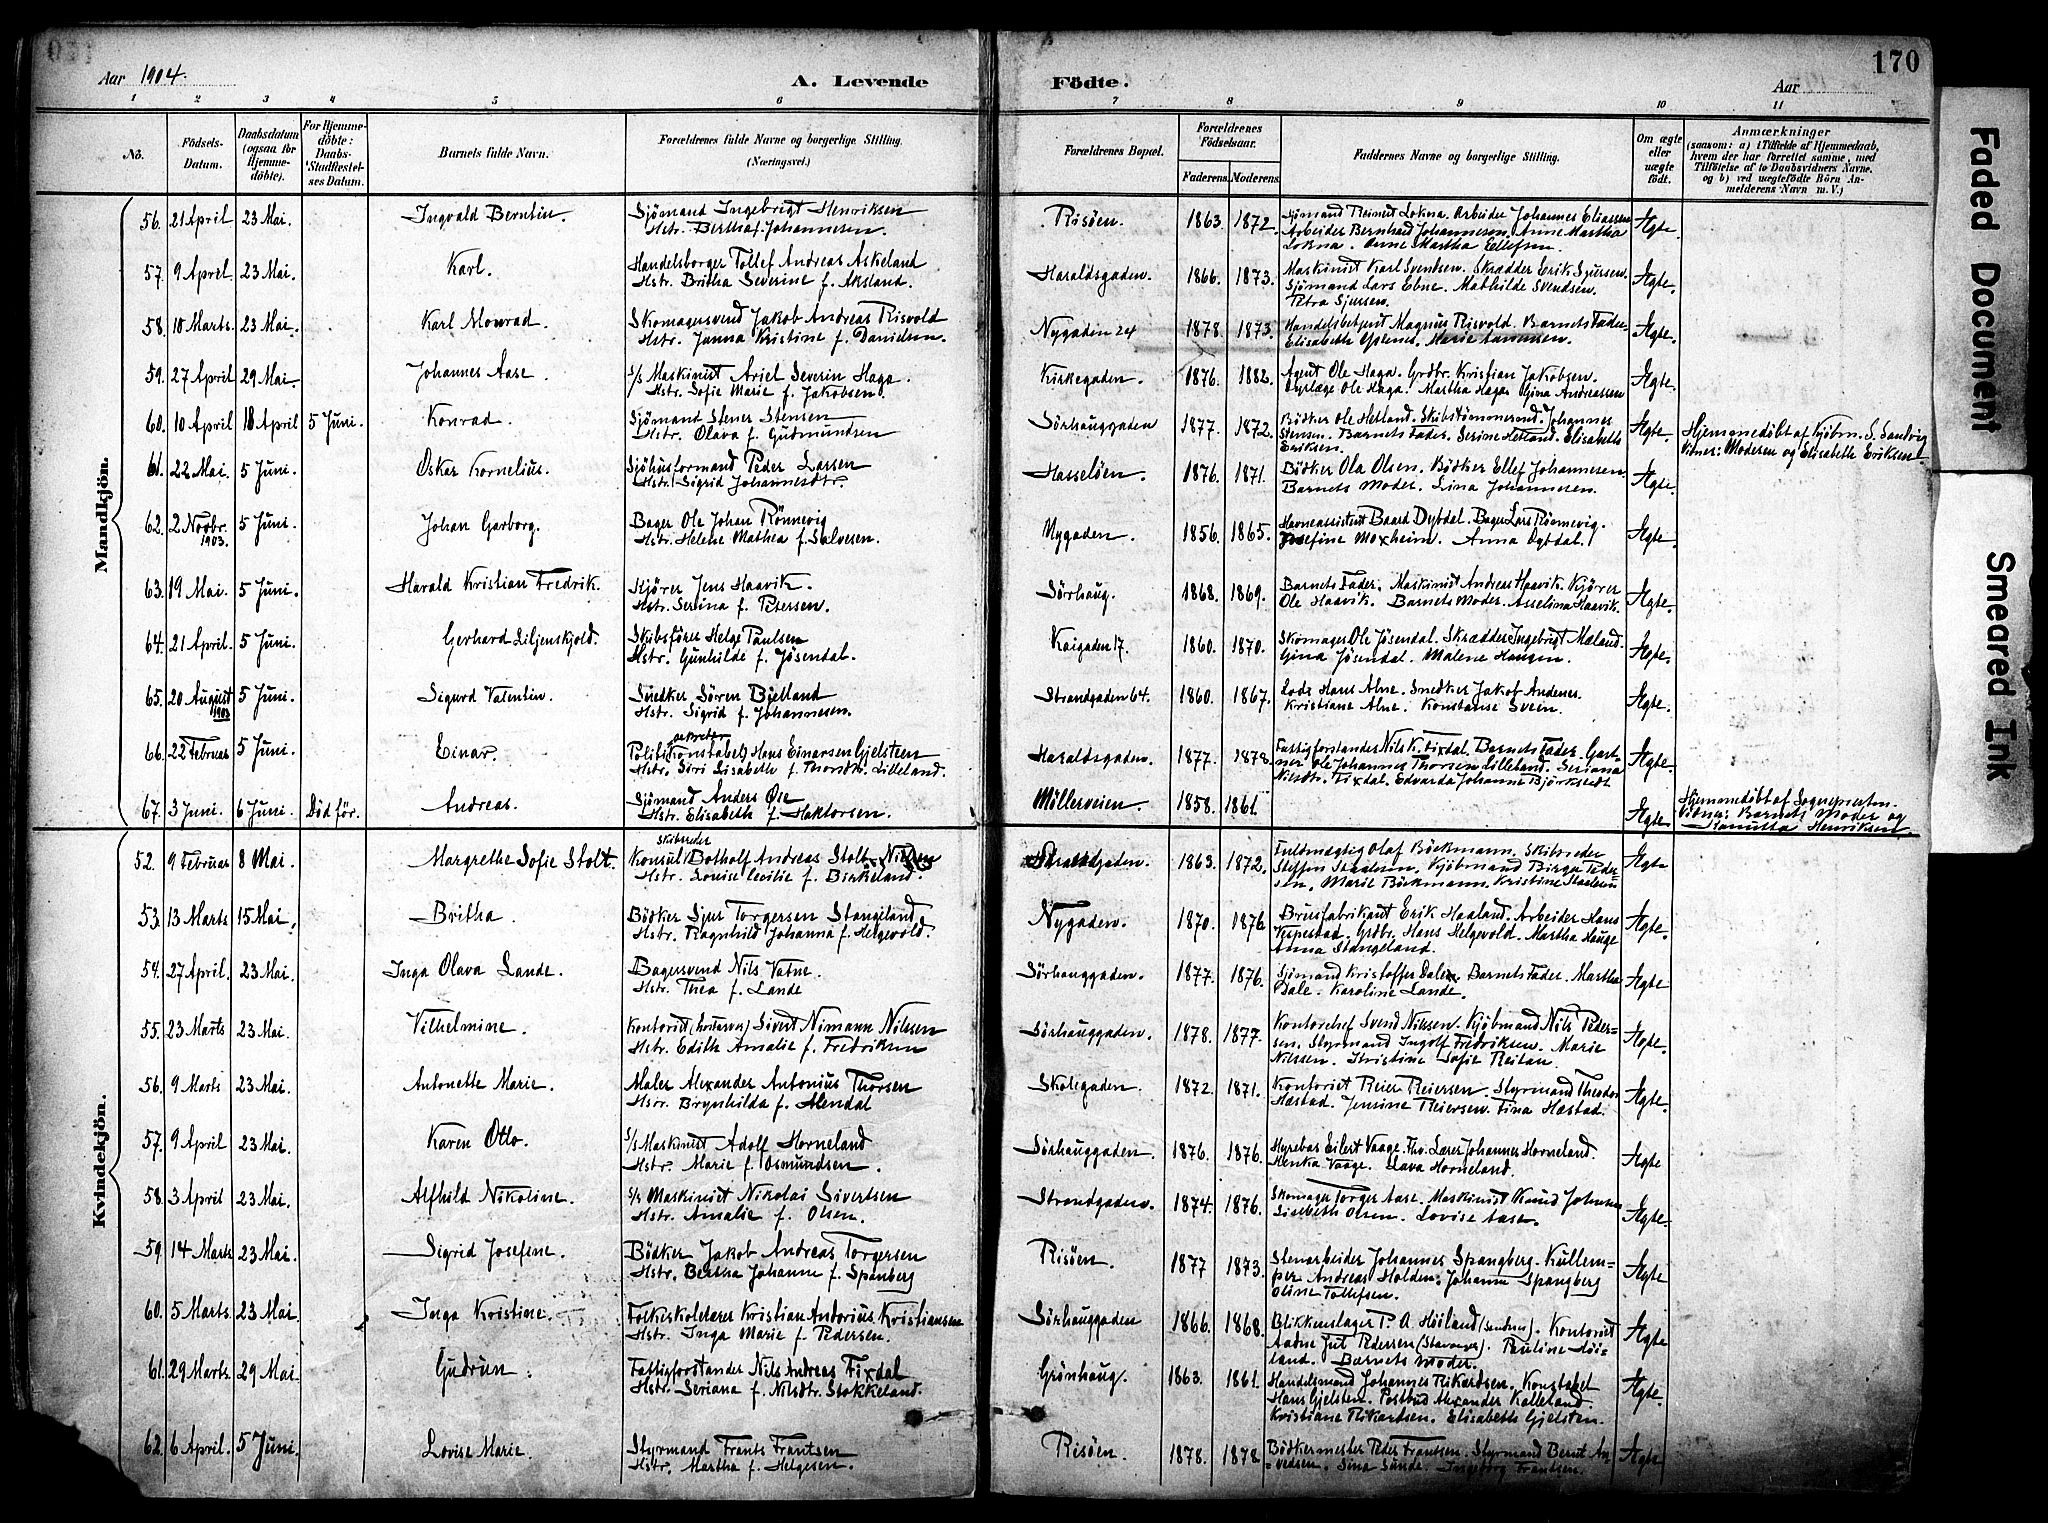 170
Aar 1904.
A. Levende Födte.
Aar
1 2 3 4 5 6 7 8 9 10 11
No. Födsels-Datum. Daabsdatum (ogsaa for Hjemmedöbte). For Hjemmedöbte: Daabs-Stadfestelses Datum. Barnets fulde Navn. Forældrenes fulde Navne og borgerlige Stilling. (Næringsvei.) Forældrenes Bopæl. Forældrenes Födselsaar. Faderens. Moderens. Faddernes Navne og borgerlige Stilling. Om ægte eller uægte födt. Anmærkninger (saasom: a) i Tilfælde af Hjemmedaab, hvem der har forrettet samme, med Tilföielse af to Daabsvidners Navne. og b) ved uægtefödte Börn Anmelderens Navn m. V.)
Mandkjön.
56. 21 April 23 Mai. Ingvald Berntin. Sjömand Ingebrigt Henriksen Risöen. 1863. 1872. Sjömand Reinert Lokna. Arbeider Johannes Eliassen Ægte.
Hstr. Bertha f. Johannesen. Arbeider Bernhard Johannesen. Anne Martha
Lokna. Anne Martha Ellefsen.
57. 9 April 23 Mai. Karl. Handelsborger Tollef Andreas Askeland Haraldsgaden. 1866. 1873. Maskinist Karl Svendsen. Skrædder Erik Sjursen. Ægte.
Hstr. Britha Severine f. Aksland. Sjömand Lars Ebne. Mathilde Svendsen.
Petra Sjursen.
58. 10 Marts. 23 Mai. Karl Monrad. Skomagersvend Jakob Andreas Risvold Nygaden 24 1878. 1873. Handelsbetjent Magnus Risvold. Barnets Fader. Ægte.
Hstr. Janna Kristine f. Danielsen. Elisabeth
59. 27 April 29 Mai. Johannes Aase. S/s Maskinist Ariel Severin Haga. Kirkegaden. 1876. 1882. Agent Ole Haga. Grdbr. Kristian Jakobsen. Ægte.
Hstr. Sofie Marie f. Jakobsen. Ole Haga. Martha Haga. Gjina Andreassen
60. 10 April 18 April 5 Juni. Konrad. Sjömand Stener Stensen Sörhauggaden 1877. 1872. Bödker Ole Hetland. Skibstömmermd. Johannes Ægte. Hjemmedöbt af Kjöbm. S. Sandvig
Hstr. Olava f. Gudmundsen Stensen. Barnets Fader. Serine Hetland. Elisabeth Vitner: Moderen og Elisabeth Eriksen.
Eriksen.
61. 22 Mai. 5 Juni. Oskar Kornelius. Sjöhusformand Peder Larsen Hasselöen. 1876. 1871. Bödker Ola Olsen. Bödker Ellef Johannesen Ægte.
Hstr. Sigrid Johannesdtr. Barnets Moder. Lina Johannesen.
62. 2 Novbr. 1903. 5 Juni. Johan Garborg. Bager Ole Johan Rönnevig Nygaden. 1856. 1865. Havneassistent Baard Dybdal. Bager Lars Rönnevig. Ægte.
Hstr. Helene Mathea f. Salvesen. Josefine Moxheim. Anna Dybdal.
63. 19 Mai. 5 Juni. Harald Kristian Fredrik. Kjörer Jens Haavik. Sörhaug. 1868. 1869. Barnets Fader. Maskinist Andreas Haavik. Kjörer Ægte.
Hstr. Serina f. Petersen. Ole Haavik. Barnets Moder. Asseline Haavik.
64. 21 April. 5 Juni. Gerhard Liljenskjold. Skibsförer Helge Paulsen Kaigaden 17. 1860. 1870. Skomager Ole Jösendal. Skrædder Ingebrigt Mæland. Ægte.
Hstr. Gunhilde f. Jösendal. Gina Jösendal. Malene Haugen.
65. 20 August 1903 5 Juni. Sigurd Valentin. Snedker Sören Bjelland Strandgaden 64. 1860. 1867. Lods Hans Alne. Snedker Jakob Andenes. Ægte.
Hstr. Sigrid f. Johannesen. Kristiane Alne. Konstanse Svein.
66. 22 Februar 5 Juni. Einar. Politikonstabel Hans Einarsen Gjelsteen Haraldsgaden. 1877. 1878. Fattigforstander Nils K. Fixdal. Barnets Fader. Gart- Ægte.
Hstr. Siri Lisabeth f. Thorsdtr. Lilleland. ner Ole Johannes Thorsen Lilleland. Seriana
Nilsdtr. Fixdal. Edvarda Johanne Björkstedt
67. 3 Juni. 6 Juni. Död för. Andreas. Sjömand Anders Öie Möllerveien. 1858. 1861. Ægte Hjemmedöbt af Sognepresten.
Hstr. Elisabeth f. Haktorsen. Vitner: Barnets Moder og
Henriksen.
Kvindekjön.
52. 9 Februar 8 Mai. Margrethe Sofie Stolt. Skibsreder Konsul Botholf Andreas Stolt-Nielsen 1863. 1872. Fuldmægtig Olaf Böckmann. Skibsreder Ægte
Hstr. Louise Cecilie f. Birkeland. Steffen Staalesen. Kjöbmand Birger Peder-
sen. Marie Böckmann. Kristine Staalesen
53. 13 Marts 15 Mai. Britha. Bödker Sjur Torgersen Stangeland Nygaden. 1870. 1876 Brusfabrikant Erik Haaland. Arbeider Hans Ægte.
Hstr. Ragnhild Johanna f. Helgevold. Grdbr. Hans Helgevold. Martha Hauge
Anna Stangeland.
54. 27 April. 23 Mai. Inga Olava Lande. Bagersvend Nils Vatne. Sörhauggaden. 1877. 1876. Sjömand Kristoffer Dalen. Barnets Fader. Martha Ægte
Hstr. Thea f. Lande Dale. Karoline Lande.
55. 23 Marts 23 Mai. Vilhelmine. Kontorist Sivert Nimann Nilssen Sörhauggaden. 1878. 1877. Kontorchef Svend Nilssen. Kjöbmand Nils Peder- Ægte.
Hstr. Edith Amalie f. Fredriksen sen. Styrmand Ingolf Fredriksen. Marie
Nilssen. Kristine Sofie Reitan.
56. 9 Marts 23 Mai. Antonette Marie. Maler Alexander Antonius Thorsen Skolegaden. 1872. 1871. Kontorist Reier Reiersen. Styrmand Theodor Ægte.
Hstr. Brynhilda f. Alendal Hæstad. Jensine Reiersen. Tina Hæstad.
57. 9 April 23 Mai. Karen Otto. S/s Maskinist Adolf Horneland Sörhauggaden. 1876. 1876. Hyrebas Eilert Vaage. Fhv. Lærer Johannes Horneland. Ægte
Hstr. Marie f. Osmundsen. Vaage. Horneland.
58. 3 April 23 Mai. Alfhild Nikoline. S/s Maskinist Nikolai Sivertsen Strandgaden. 1874. 1876. Skomager Torger Aase. Maskinist Knud Johnsen Ægte.
Hstr. Amalie f. Olsen. Lisebeth Olsen. Lovise Aase.
59. 14 Marts 23 Mai. Sigrid Josefine. Bödker Jakob Andreas Torgersen Risöen. 1877 1873. Stenarbeider Johannes Spangberg. Kullem- Ægte
Hstr. Bertha Johanne f. Spanberg per Andreas Holden. Johanne Spangberg
Oline Tollefsen.
60. 5 Marts. 23 Mai Inga Kristine. Folkeskolelærer Kristian Antonius Kristiansen Sörhauggaden 1866. 1868. Blikkenslager P. A. Höiland. Kontorist Ægte
Hstr. Inga Marie f. Pedersen. Pedersen (Stavanger). Pauline Höi-
land. Barnets Moder.
61. 29 Marts. 29 Mai. Gudrun. Fattigforstander Nils Andreas Fixdal Grönhaug. 1863. 1861. Handelsmand Johannes Rikardsen. Konstabel Ægte.
Hstr. Seriana f. Nilsdtr. Stokkeland. Hans Gjelsten. Postbud Alexander Kalleland.
Kristiane Rikardsen. Elisabeth Gjelsten.
62. 6 April. 5 Juni. Lovise Marie. Styrmand Frants Frantsen Risöen. 1878. 1878 Bödkermester Peder Frantsen. Styrmand Bernt Ar- Ægte
Hstr. Martha f. Helgesen. vedsen. Sina Sunde. Ingeborg Frantsen.
Faded Document
Smeared Ink